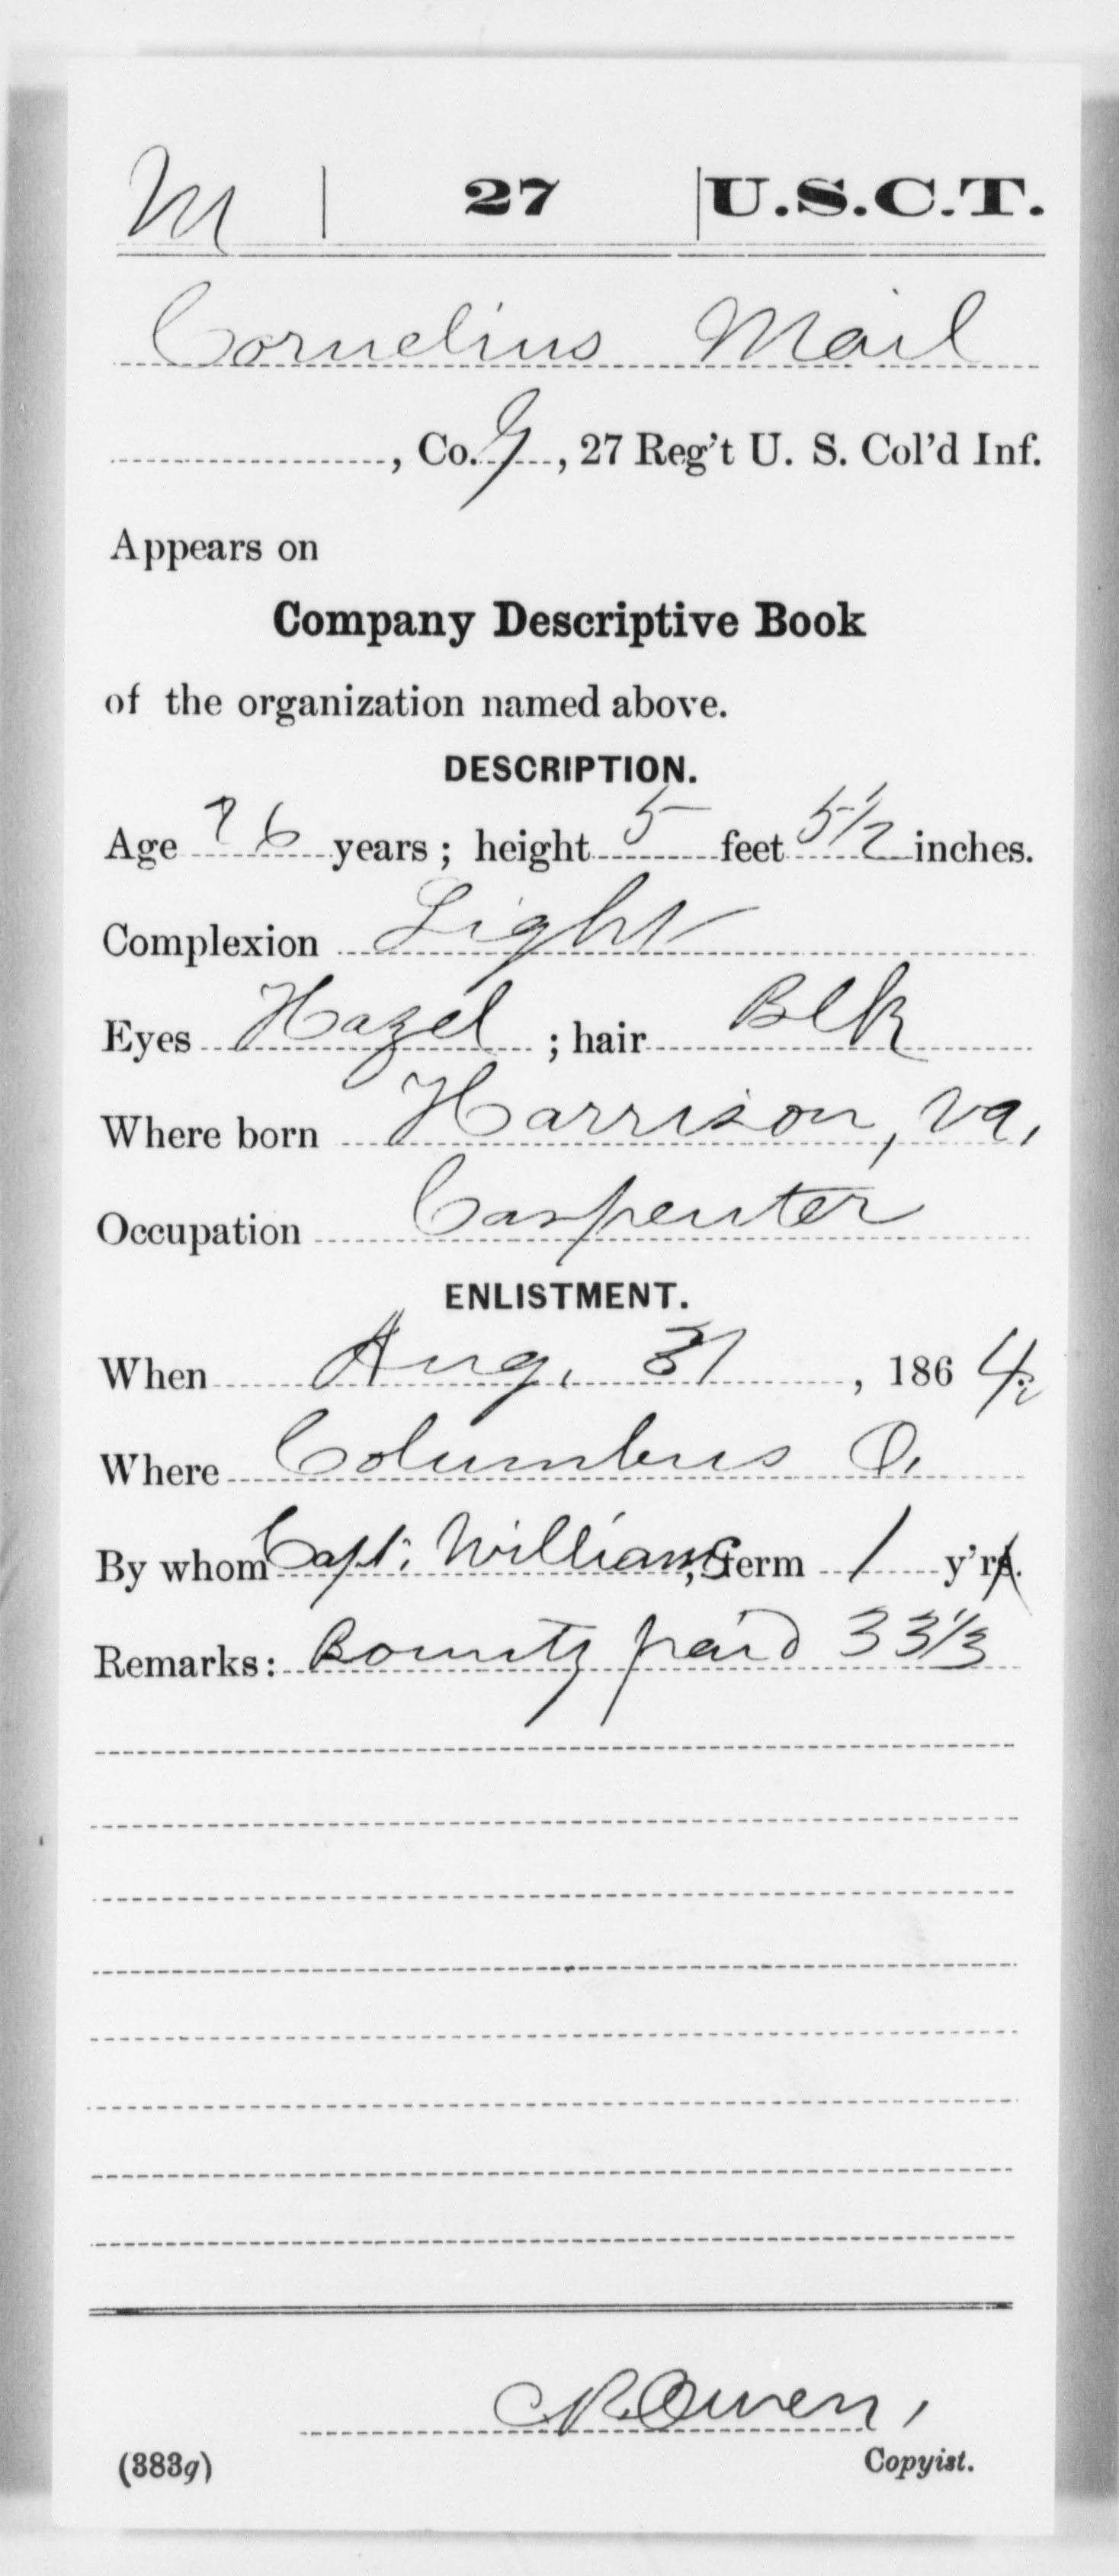 M | 27 | U.S.C.T.
Cornelius Mail
, Co. G, 27 Reg't U. S. Col'd Inf.
Appears on
Company Descriptive Book
of the organization named above.
DESCRIPTION.
Age 26 years; height 5 feet 5 1/2 inches.
Complexion Light
Eyes Hazel ; hair Blk
Where born Harrison, Va,
Occupation Carpenter
ENLISTMENT.
When Aug. 31, 1864.
Where Columbus O.
By whom Capt. Williams, term 1 y'r.
Remarks: Bounty paid 33 1/3
Owen,
(383g) Copyist.